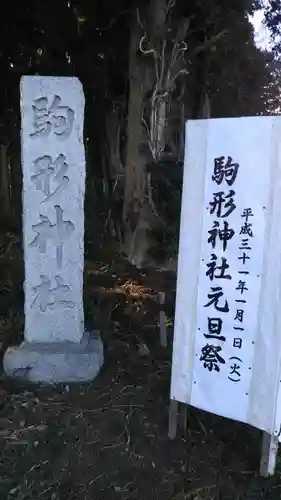 駒形神社
駒形神社元旦祭
平成三十一年一月一日(火)